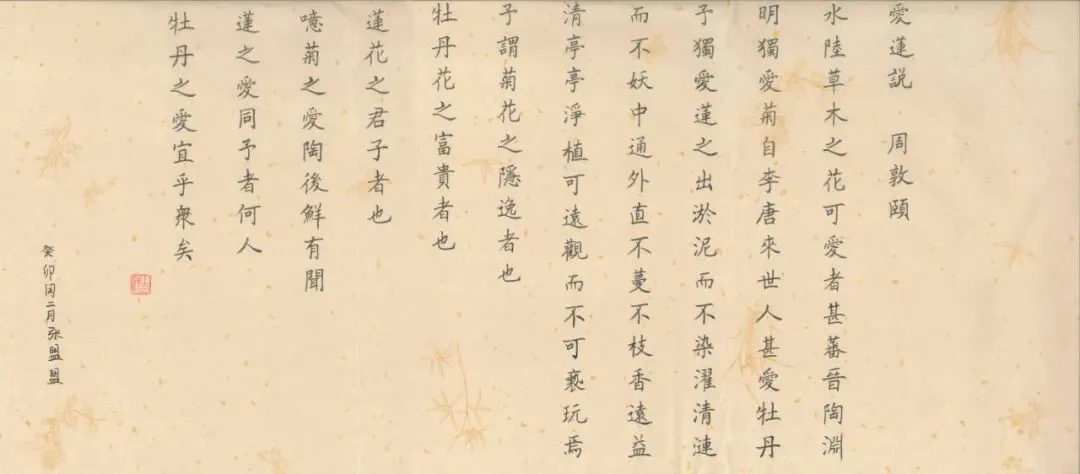 愛蓮説 周敦頤
水陸草木之花可愛者甚蕃晉陶淵
明獨愛菊自李唐來世人甚愛牡丹
予獨愛蓮之出淤泥而不染濯清漣
而不妖中通外直不蔓不枝香遠益
清亭亭淨植可遠觀而不可褻玩焉
予謂菊花之隱逸者也
牡丹花之富貴者也
蓮花之君子者也
噫菊之愛陶後鮮有聞
蓮之愛同予者何人
牡丹之愛宜乎衆矣
癸卯闰二月張盟盟